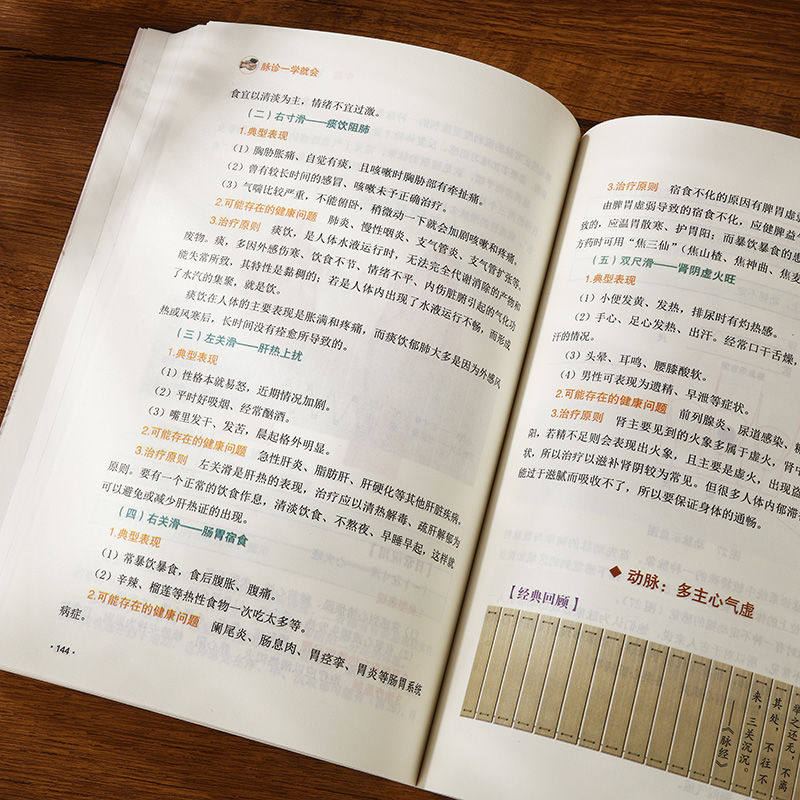 脉诊一学就会
食宜以清淡为主，情绪不宜过激。
（二）右寸滑——痰饮阻肺
1.典型表现
（1）胸胁胀痛、自觉有痰，且咳嗽时胸胁部有牵扯痛。
（2）曾有较长时间的感冒、咳嗽未予正确治疗。
（3）气喘比较严重，不能俯卧，稍微动一下就会加剧咳嗽和疼痛。
2.可能存在的健康问题 肺炎、慢性咽炎、支气管炎、支气管扩张等。
3.治疗原则 痰饮，是人体水液运行时，无法完全代谢消除的产物和
废物。痰，多因外感伤寒、饮食不节、情绪不平、内伤脏腑引起的气化功
能失常所致，其特性是黏稠的；若是人体内出现了水液运行不畅，而形成
了水汽的集聚，就是饮。
痰饮在人体的主要表现是胀满和疼痛，而痰饮郁肺大多是因为外感风
热或风寒后，长时间没有痊愈所导致的。
（三）左关滑——肝热上扰
1.典型表现
（1）性格本就易怒，近期情况加剧。
（2）平时好吸烟、经常酗酒。
（3）嘴里发干、发苦，晨起格外明显。
2.可能存在的健康问题 急性肝炎、脂肪肝、肝硬化等其他肝脏疾病。
3.治疗原则 左关滑是肝热的表现，治疗应以清热解毒、疏肝解郁为
原则。要有一个正常的饮食作息，清淡饮食、不熬夜、早睡早起，这样就
可以避免或减少肝热证的出现。
（四）右关滑——肠胃宿食
1.典型表现
（1）常暴饮暴食，食后腹胀、腹痛。
（2）辛辣、榴莲等热性食物一次吃太多等。
2.可能存在的健康问题 阑尾炎、肠息肉、胃痉挛、胃炎等肠胃系统
病症。
·144·
3.治疗原则 宿食不化的原因有脾胃虚
由脾胃虚弱导致的宿食不化，应健脾益气
致的，应温胃散寒、护胃阳；而暴饮暴食的患
方药时可用“焦三仙”（焦山楂、焦神曲、焦麦
（五）双尺滑——肾阴虚火旺
1.典型表现
（1）小便发黄、发热，排尿时有灼热感。
（2）手心、足心发热、出汗。经常口干舌燥，
汗的情况。
（3）头晕、耳鸣、腰膝酸软。
（4）男性可表现为遗精、早泄等症状。
2.可能存在的健康问题 前列腺炎、尿道感染、
3.治疗原则 肾主要见到的火象多属于虚火，肾
阳，若精不足则会表现出火象，且主要是虚火，出现
状，所以治疗以滋补肾阴较为常见。但很多人体内郁滞
能过于滋腻而吸收不了，所以要保证身体的通畅。
◆动脉：多主心气虚
【经典回顾】
举之还无，不离
其处，不往不
来，三关沉沉。
——《脉经》